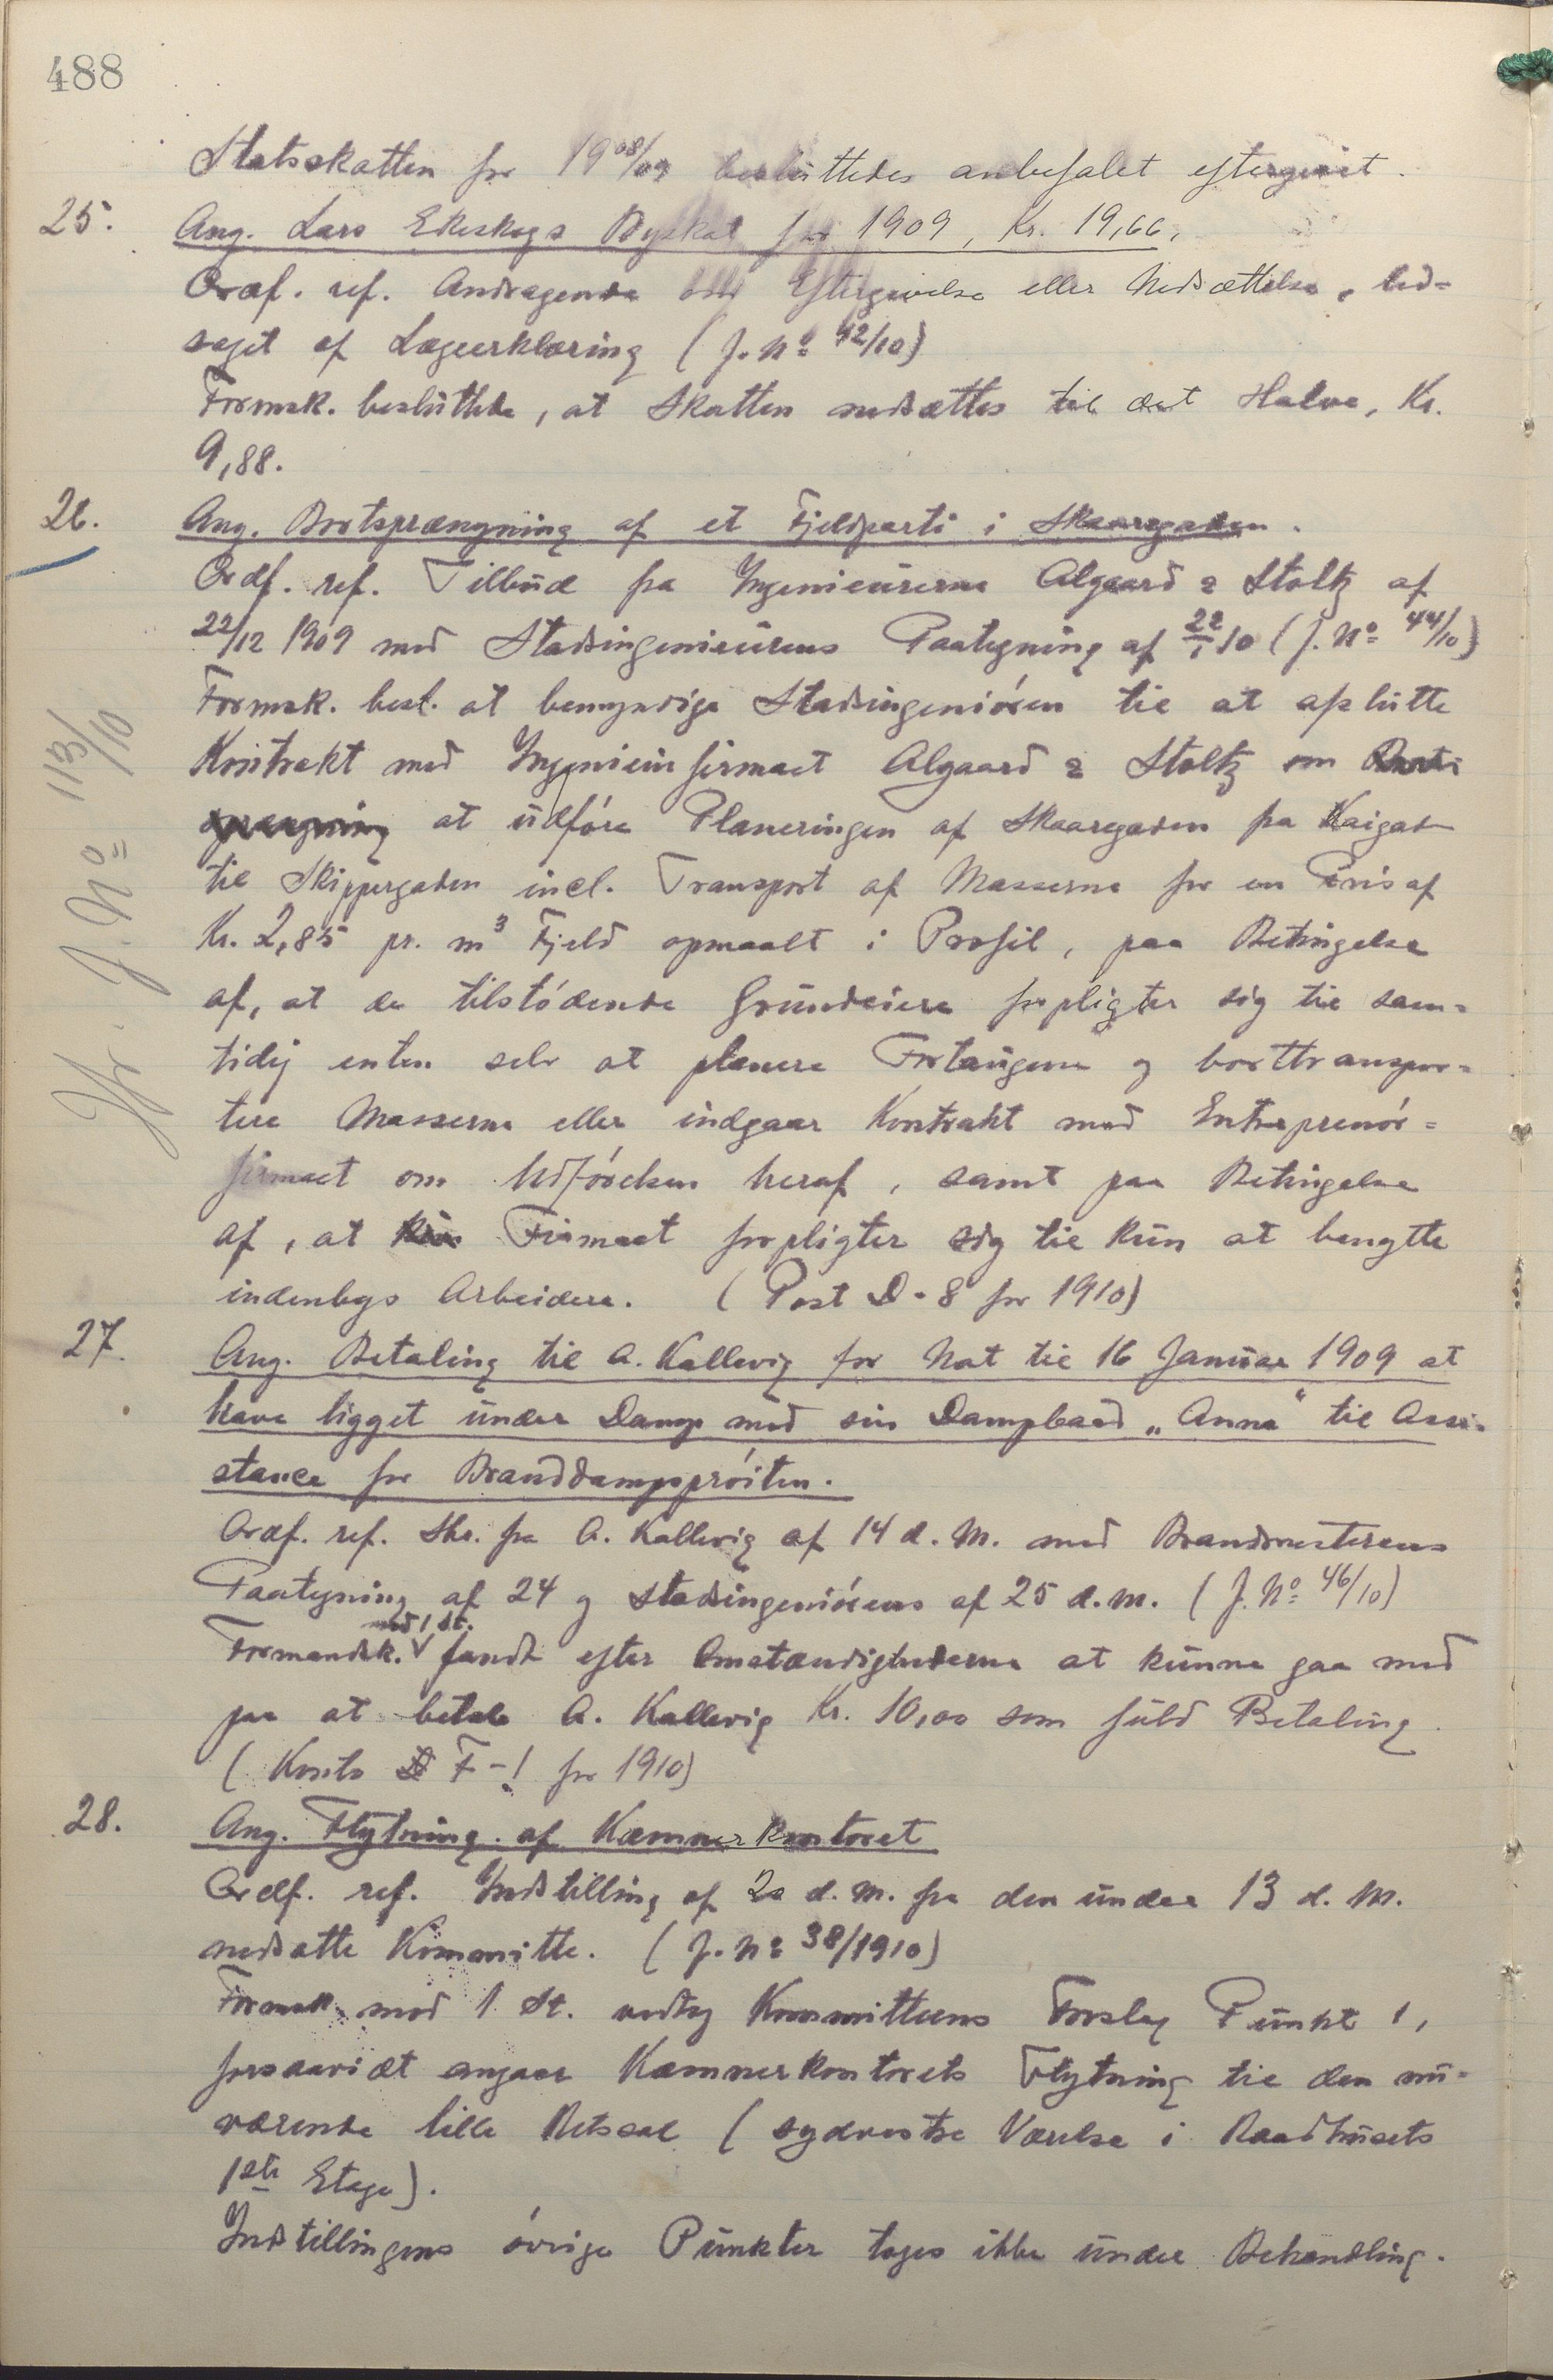 488
Statsskatten for 19⁰⁸/09 besluttedes anbefalet eftergivet.
25. Ang. Lars Ekeskogs Byskat for 1909, Kr. 19,66.
Ordf. ref. Andragende om Eftergivelse eller Nedsættelse, led-
saget af Lægeerklæring (J. No 42/10)
Formsk. besluttede, at Skatten nedsættes til det Halve, Kr.
9,88.
26. Ang. Bortsprængning af et Fjeldparti i Skaaregaden.
Ordf. ref. Tilbud fra Ingeniøurerne Algaard & Stoltz af
22/12 1909 med Stadsingeniøurens Paategning af 22/1 10 (J. No 44/10)
Formsk. besl. at bemyndige Stadsingeniøren til at afslutte
Kontrakt med Ingeniøurfirmaet Algaard & Stoltz om
at udføre Planeringen af Skaaregaden fra Kaigad
til Skippergaden incl. Transport af Masserne for en Pris af
Kr. 2,85 pr. m³ Fjeld opmaalt i Profil, paa Betingelse
af, at de tilstødende Grundeiere forpligter sig til sam-
tidig enten selv at planere Fortaugene og borttranspor-
tere Masserne eller indgaar Kontrakt med Entreprenør-
firmaet om Udførelsen heraf, samt paa Betingelse
af, at Firmaet forpligter sig til kun at benytte
indenbys Arbeidere. (Post D-8 for 1910)
Jfr. J. No 113/10
27. Ang. Betaling til A. Kallevig for Nat til 16 Januar 1909 at
have ligget under Damp med sin Dampbaad „Anna“ til Assi-
stance for Branddampsprøiten.
Ordf. ref. Skr. fra A. Kallevig af 14 d. M. med Brandmesterens
Paategning af 24 og Stadsingeniørens af 25 d. m. (J. No 46/10)
mod 1 St.
Formandsk. fandt efter Omstændighederne at kunne gaa med
paa at betale A. Kallevig Kr. 10,00 som fuld Betaling.
(Konto F-1 for 1910)
28. Ang. Flytning af Kæmnerkontoret
Ordf. ref. Indstilling af 20 d. M. fra den under 13 d. M.
nedsatte Kommitte. (J. No 38/1910)
Formsk. mod 1 St. vedtog Kommitteens Forslag Punkt 1,
forsaavidt angaar Kæmnerkontorets Flytning til den nu-
værende lille Retssal (sydvestre Værelse i Raadhusets
1ste Etage).
Indstillingens øvrige Punkter toges ikke under Behandling.